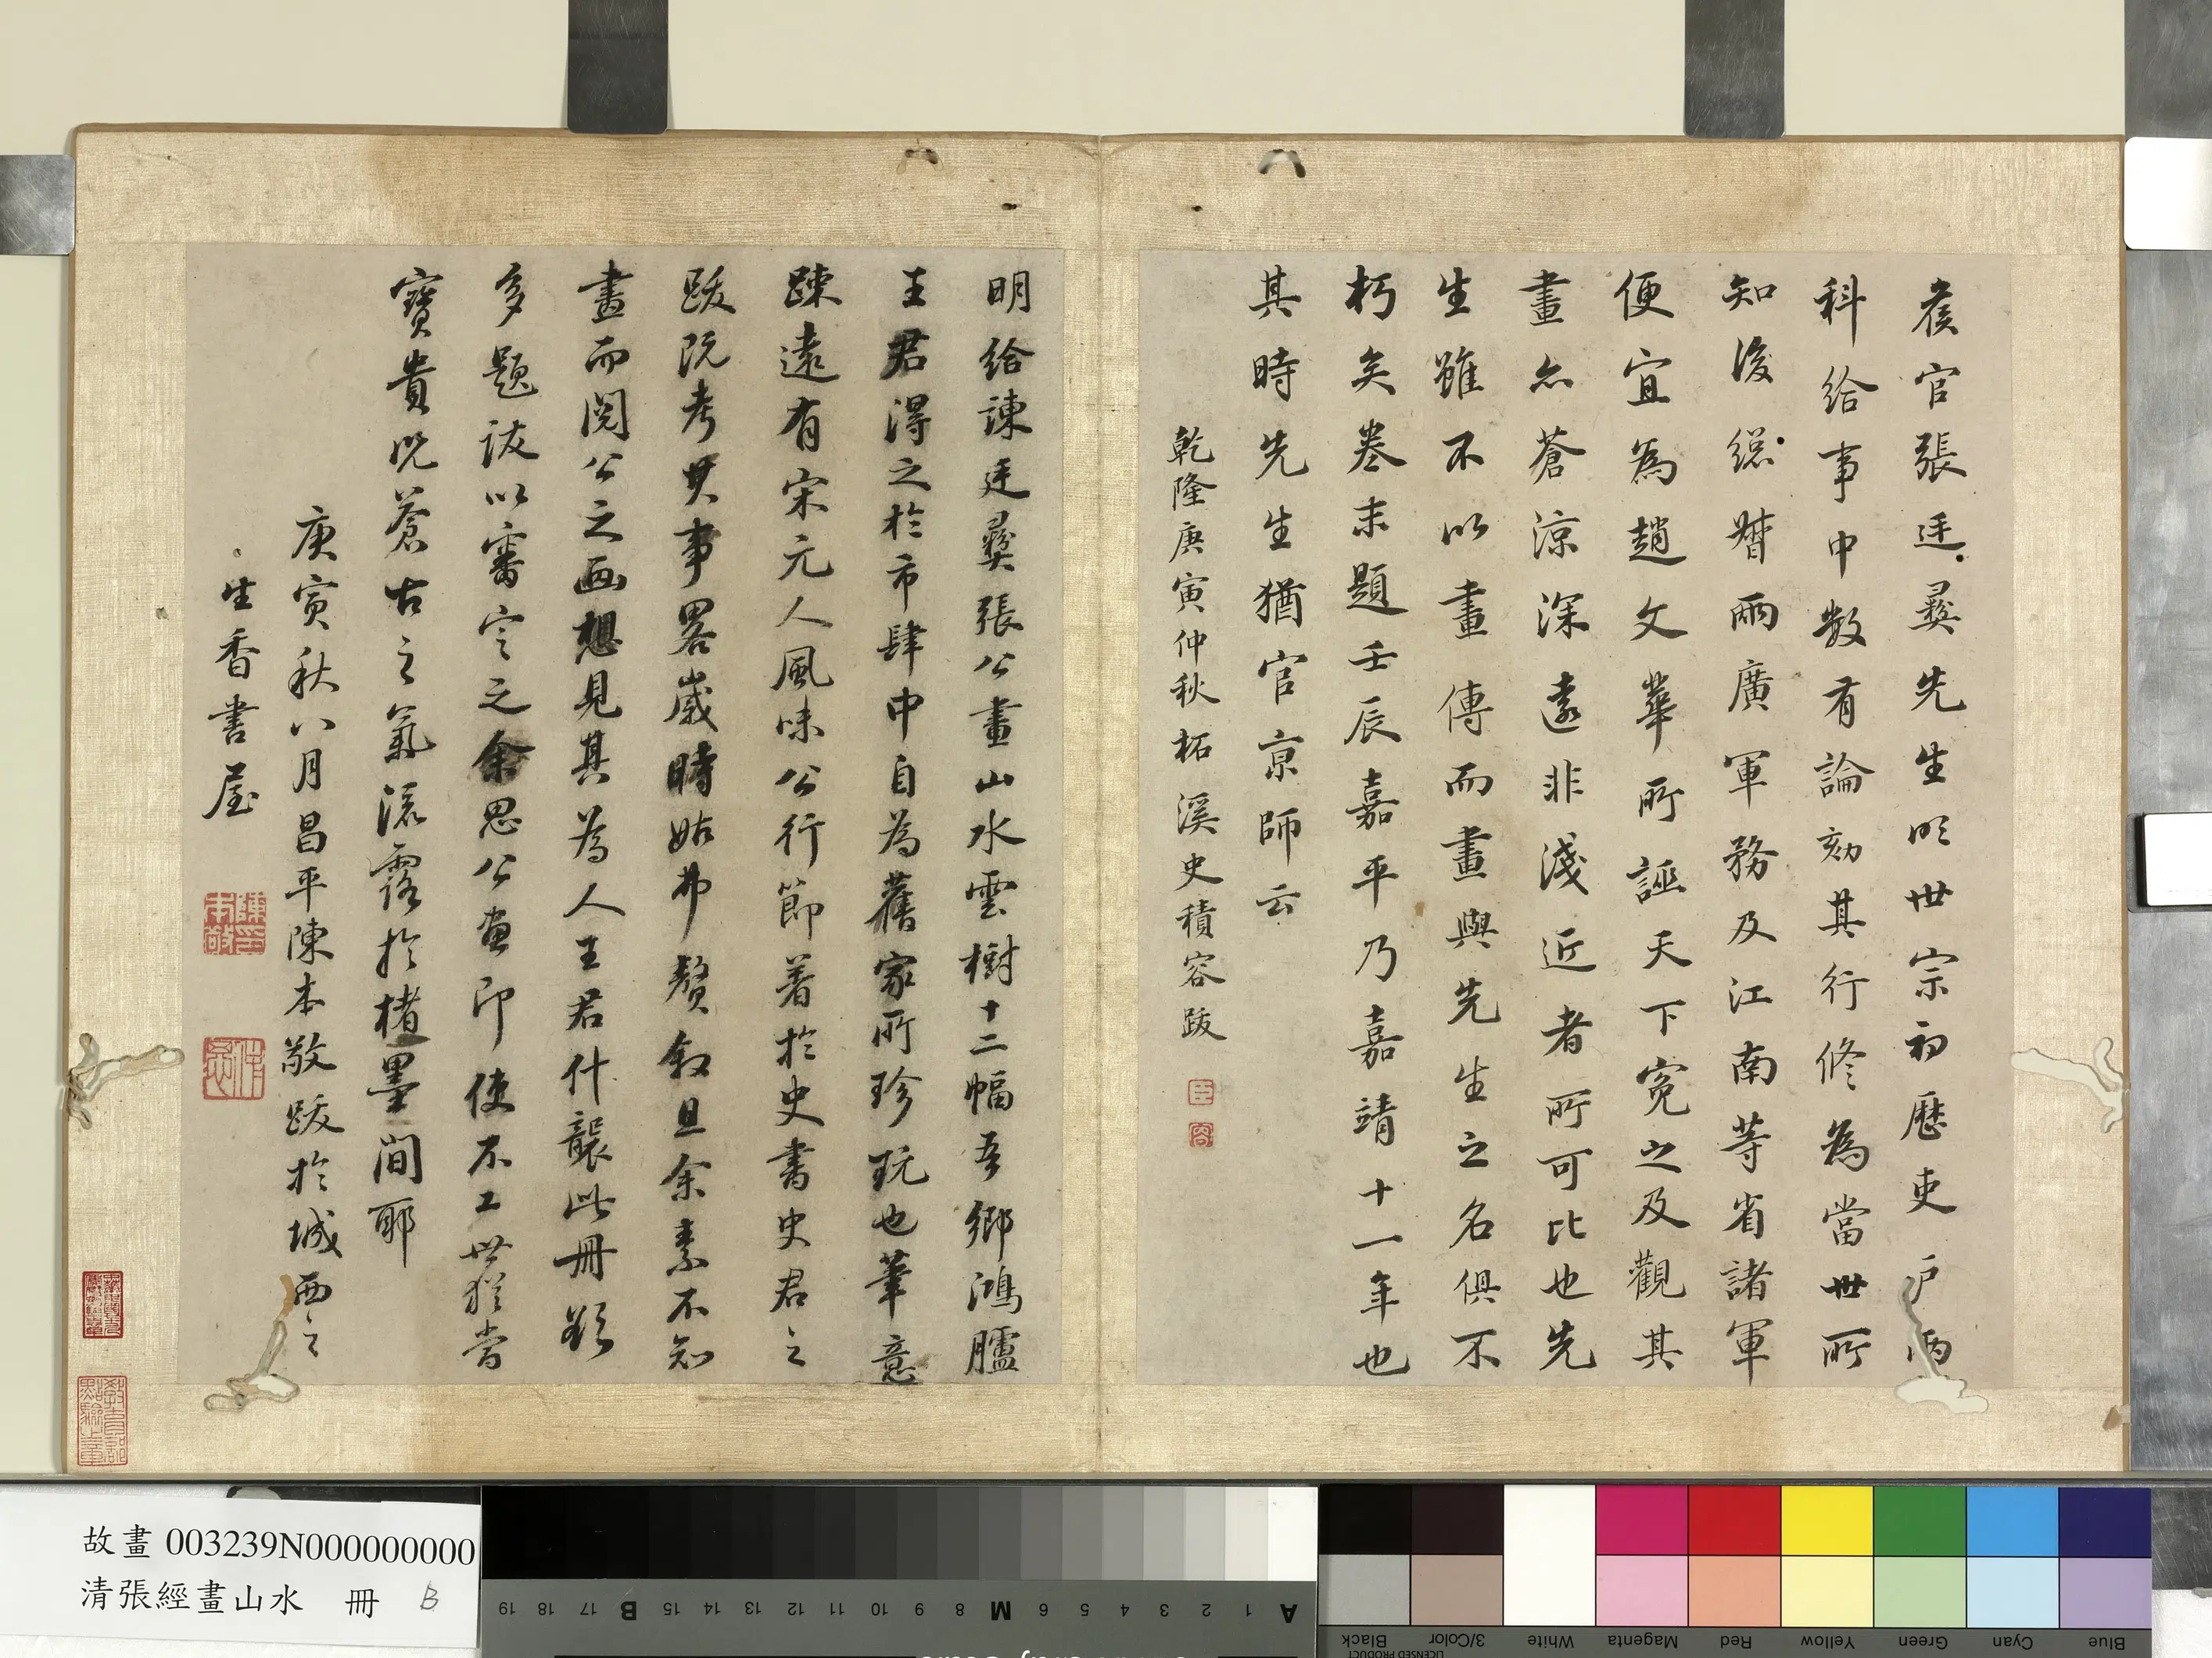 矦官張廷彝先生明世宗初歷吏戶兩
科給事中數有論劾其行修為當世所
知後總督兩廣軍務及江南等省諸軍
便宜為趙文華所誣天下冤之及觀其
畫亦蒼涼深遠非淺近者所可比也先
生雖不以畫傳而畫與先生之名俱不
朽矣卷末題壬辰嘉平乃嘉靖十一年也
其時先生猶官京師云
乾隆庚寅仲秋柘溪史積容跋
臣
容
明給諫廷彝張公畫山水雲樹十二幅吾鄉鴻臚
王君得之於市肆中自為舊家所珍玩也筆意
踈遠有宋元人風味公行節著於史書史君之
跋既考其事畧歲時姑弗贅叙且余素不知
畫而閱公之畫想見其為人王君什襲此冊欲
多題跋以審定之余思公畫即使不工世猶當
寶貴況蒼古之氣流露於楮墨間耶
庚寅秋八月昌平陳本敬跋於城西之
生香書屋
陳印本敬
教育部點驗之章
故畫 003239N000000000
清張經畫山水 冊 B
A 1 2 3 4 5 6 M 8 9 10 11 12 13 14 15 B 17 18 19
Black 3/Color White Magenta Red Yellow Green Cyan Blue
LICENSED PRODUCT